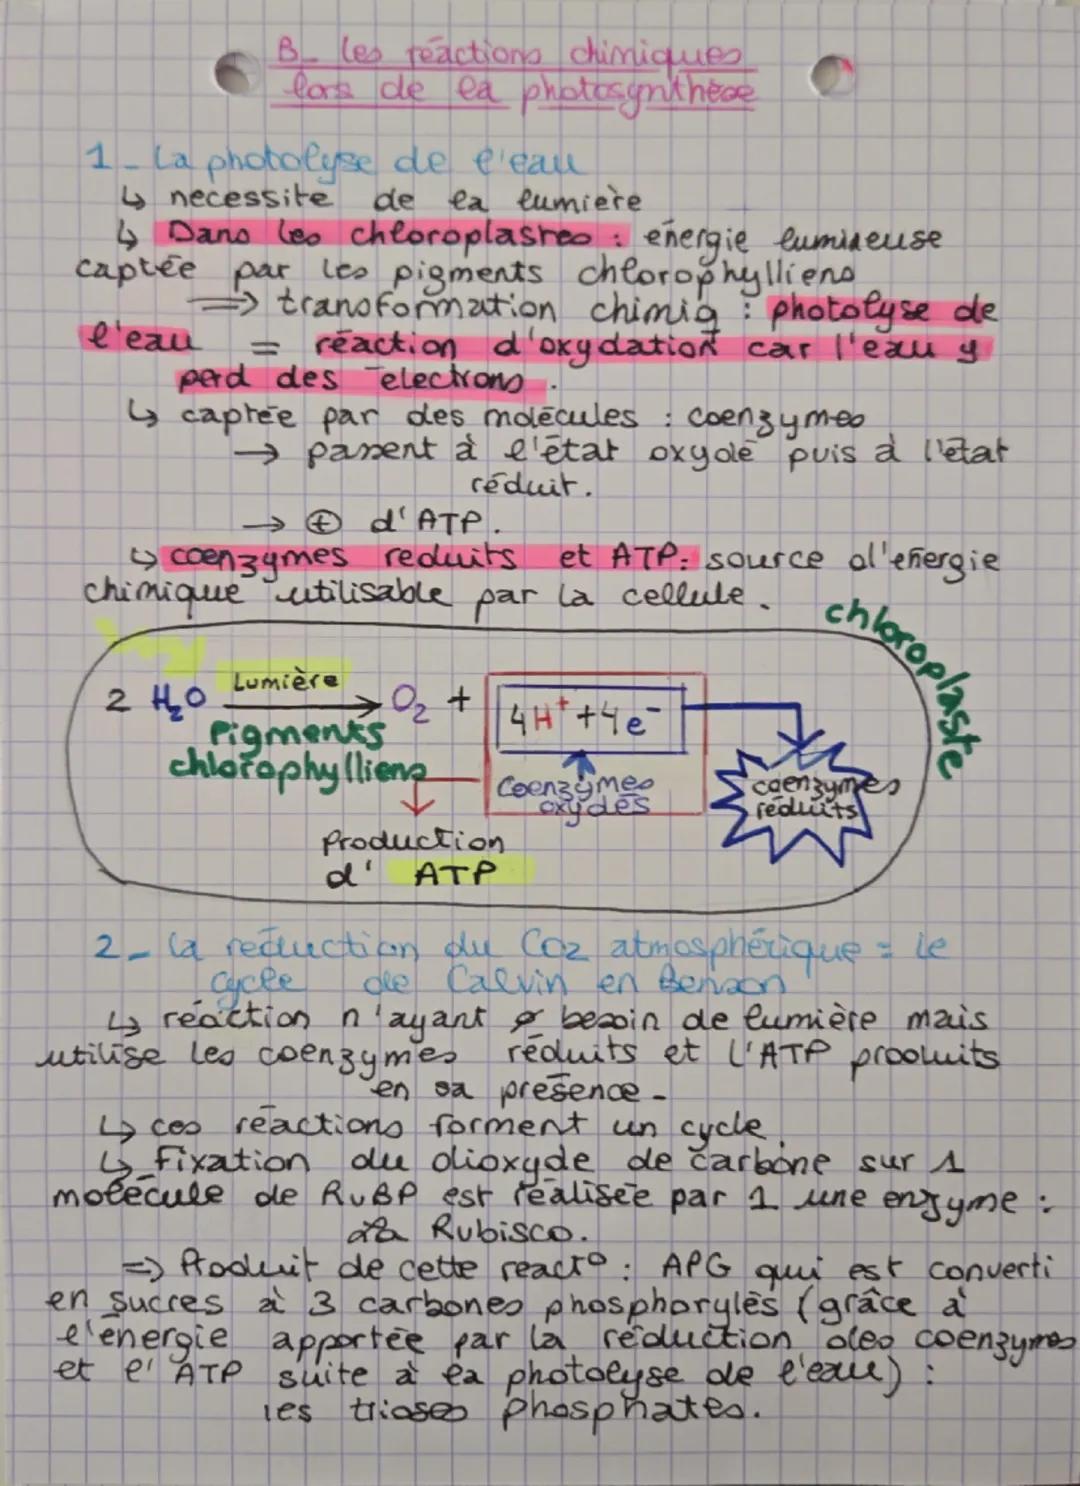 B_ les réactions chimiques
lors de la photosynthèse
1_ La photolyse de l'eau
↳ necessite de la lumière
↳ Dans les chloroplastes : énergie lumineuse
captée par les pigments chlorophylliens
⇒ transformation chimiq : photolyse de
l'eau = réaction d'oxydation car l'eau y
perd des electrons.
↳ captée par des molécules : coenzymes
→ passent à l'état oxydé puis à l'état
réduit.
→ ⊕ d'ATP.
↳ coenzymes reduits et ATP: source d'énergie
chimique utilisable par la cellule.
chloroplaste
2 H₂O Lumière → O₂ + 4H⁺ + 4e⁻
Pigments
chlorophylliens
Coenzymes
oxydés
coenzymes
réduits
Production
d' ATP
2_ la réduction du CO2 atmosphérique = le
cycle de Calvin en Benson
↳ réaction n'ayant ø besoin de lumière mais
utilise les coenzymes réduits et l'ATP produits
en sa présence_
↳ ces réactions forment un cycle.
↳ Fixation du dioxyde de carbone sur 1
molécule de RuBP est réalisée par 1 une enzyme :
la Rubisco.
=> Produit de cette react° : APG qui est converti
en sucres à 3 carbones phosphorylés (grâce à
l'énergie apportée par la réduction des coenzymes
et l'ATP suite à la photolyse de l'eau) :
les trioses phosphates.